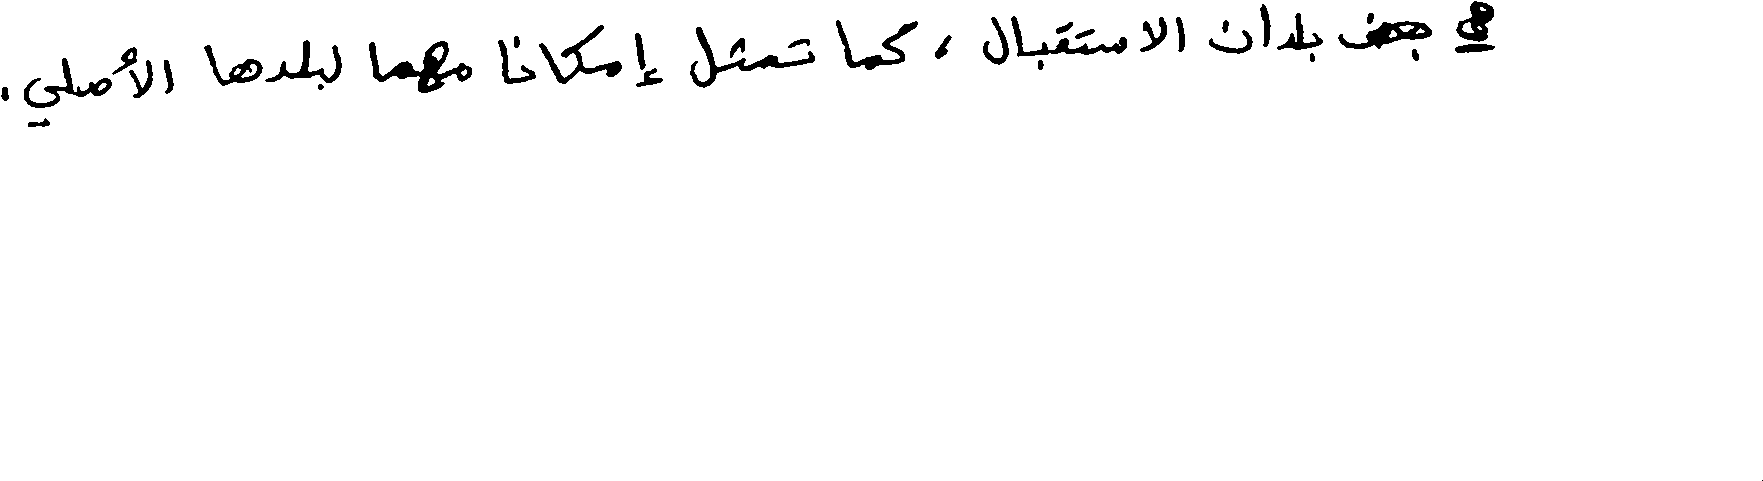 في بعض بلدان الاستقبال ، كما تمثل إمكانا مهما لبلدها الأصلي .